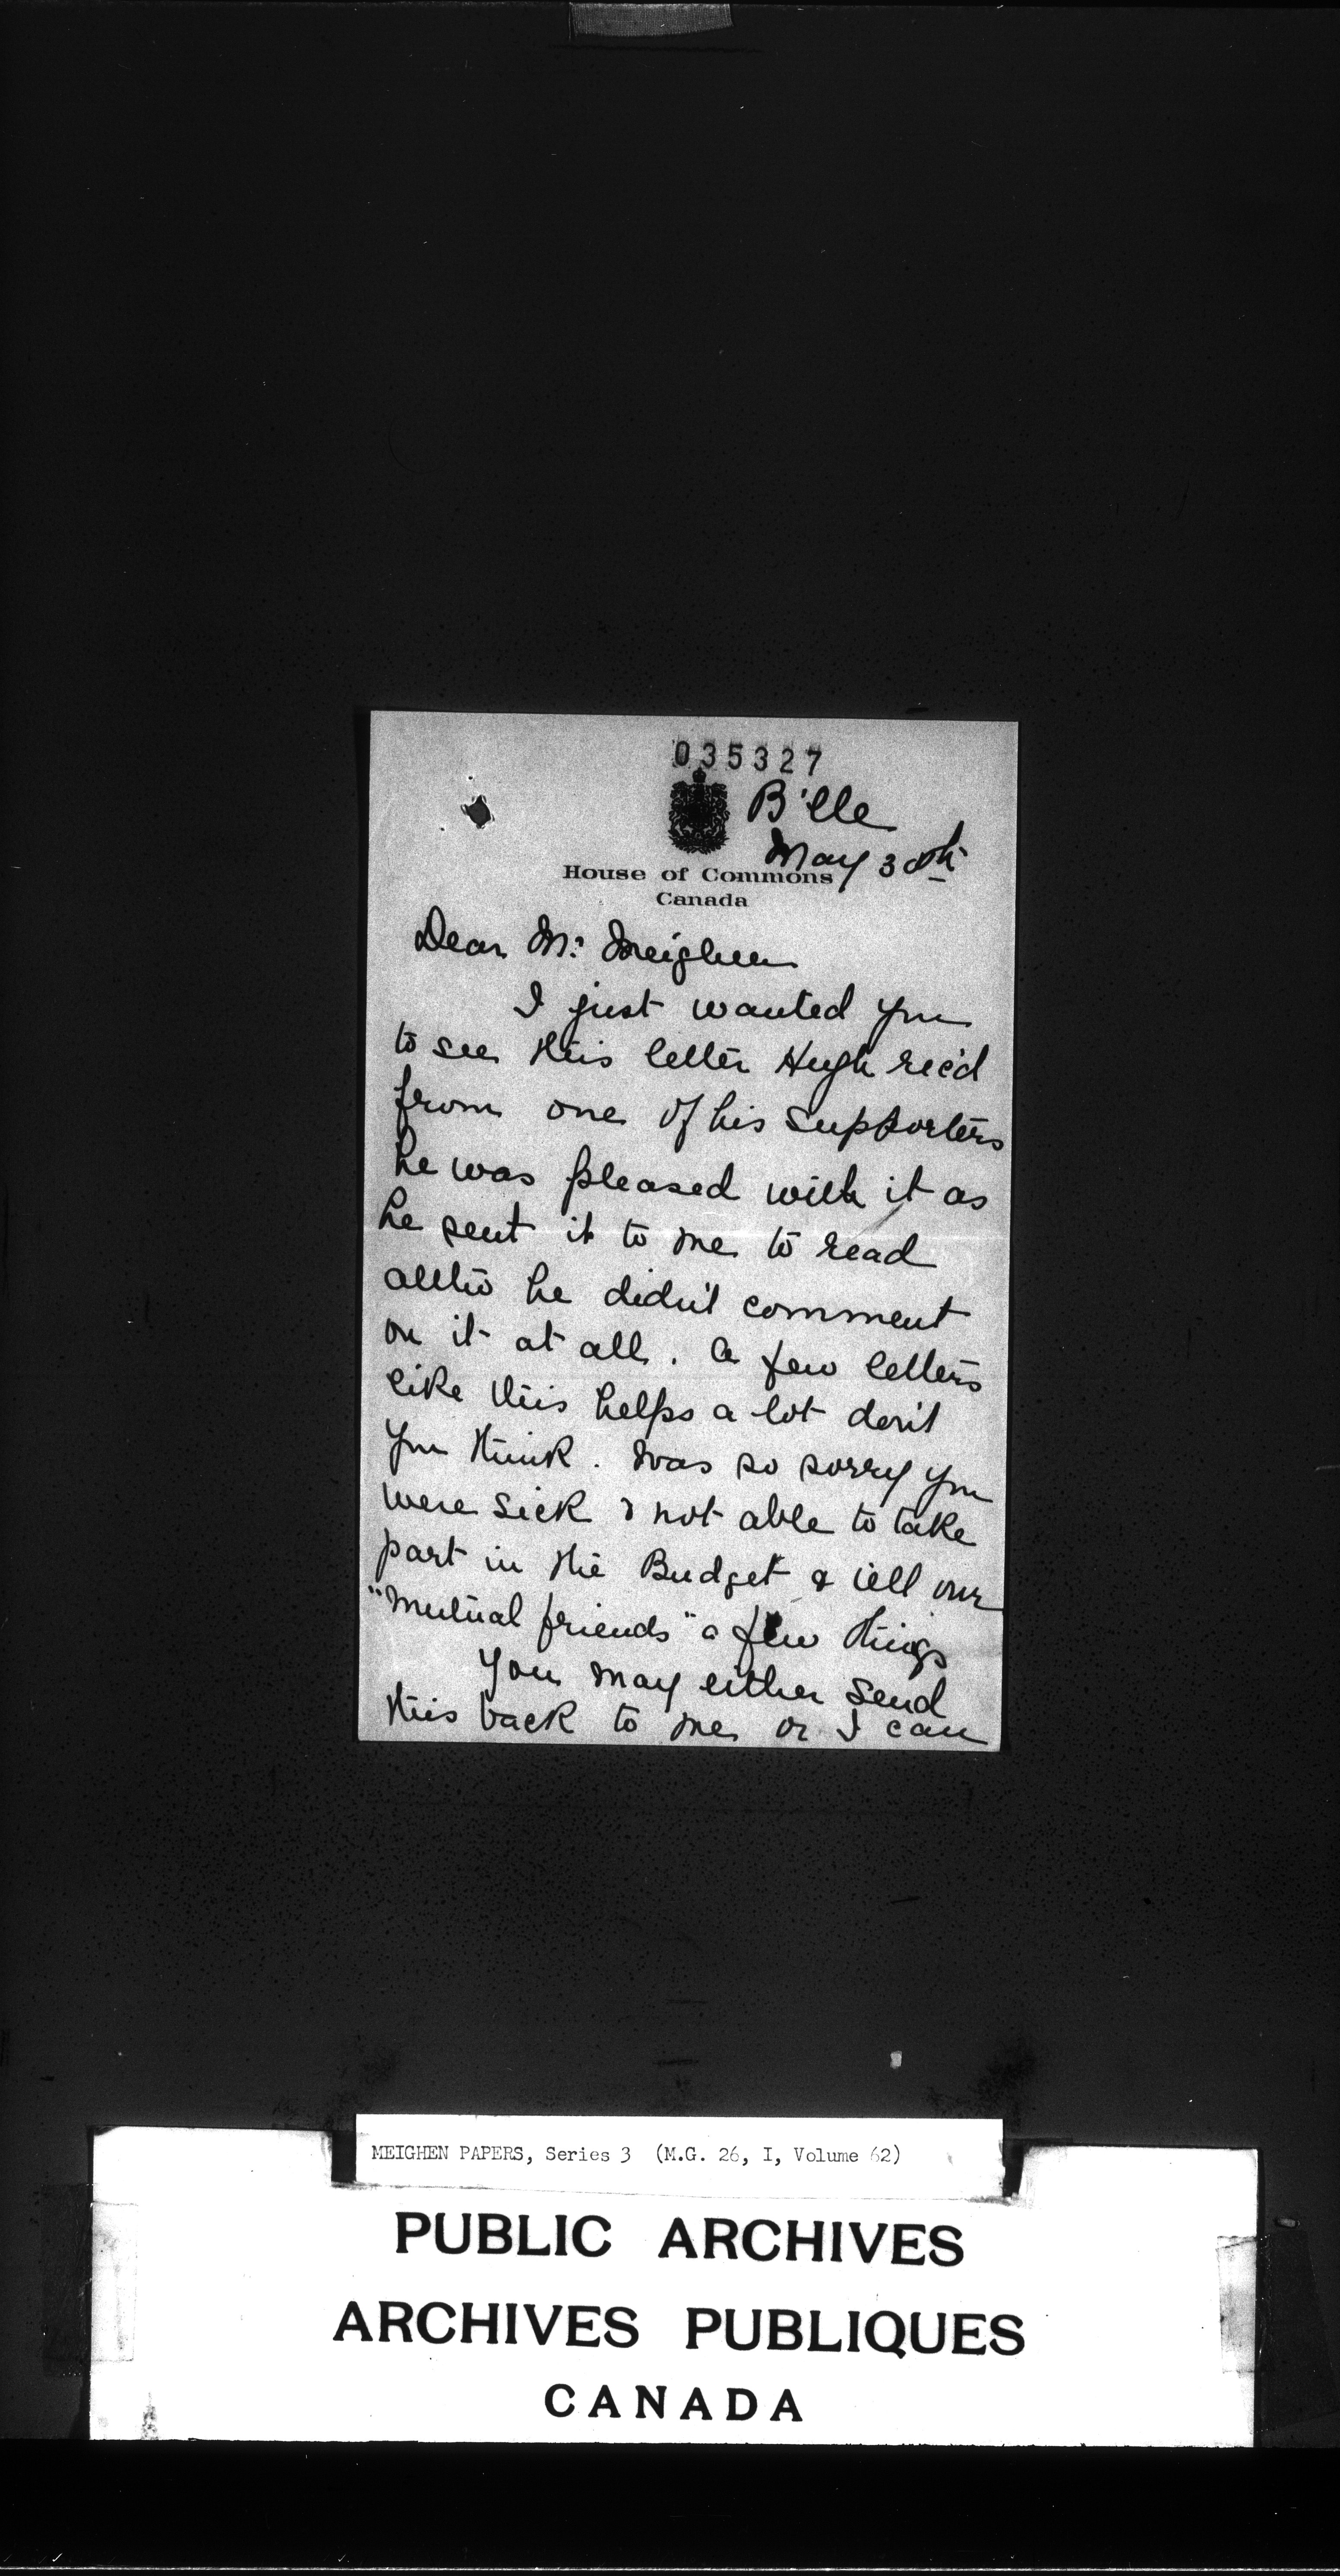 035327
B'lle
May 30th
House of Commons
Canada
Dear Mr. Meighen
I just wanted you
to see this letter Hugh rec'd
from one of his supporters
he was pleased with it as
he sent it to me to read
altho he didn't comment
on it at all. A few letters
like this helps a lot don't
you think. Was so sorry you
were sick & not able to take
part in the Budget & tell our
"mutual friends" a few things
You may either send
this back to me or I can
MEIGHEN PAPERS, Series 3 (M.G. 26, I, Volume 62)
PUBLIC ARCHIVES
ARCHIVES PUBLIQUES
CANADA